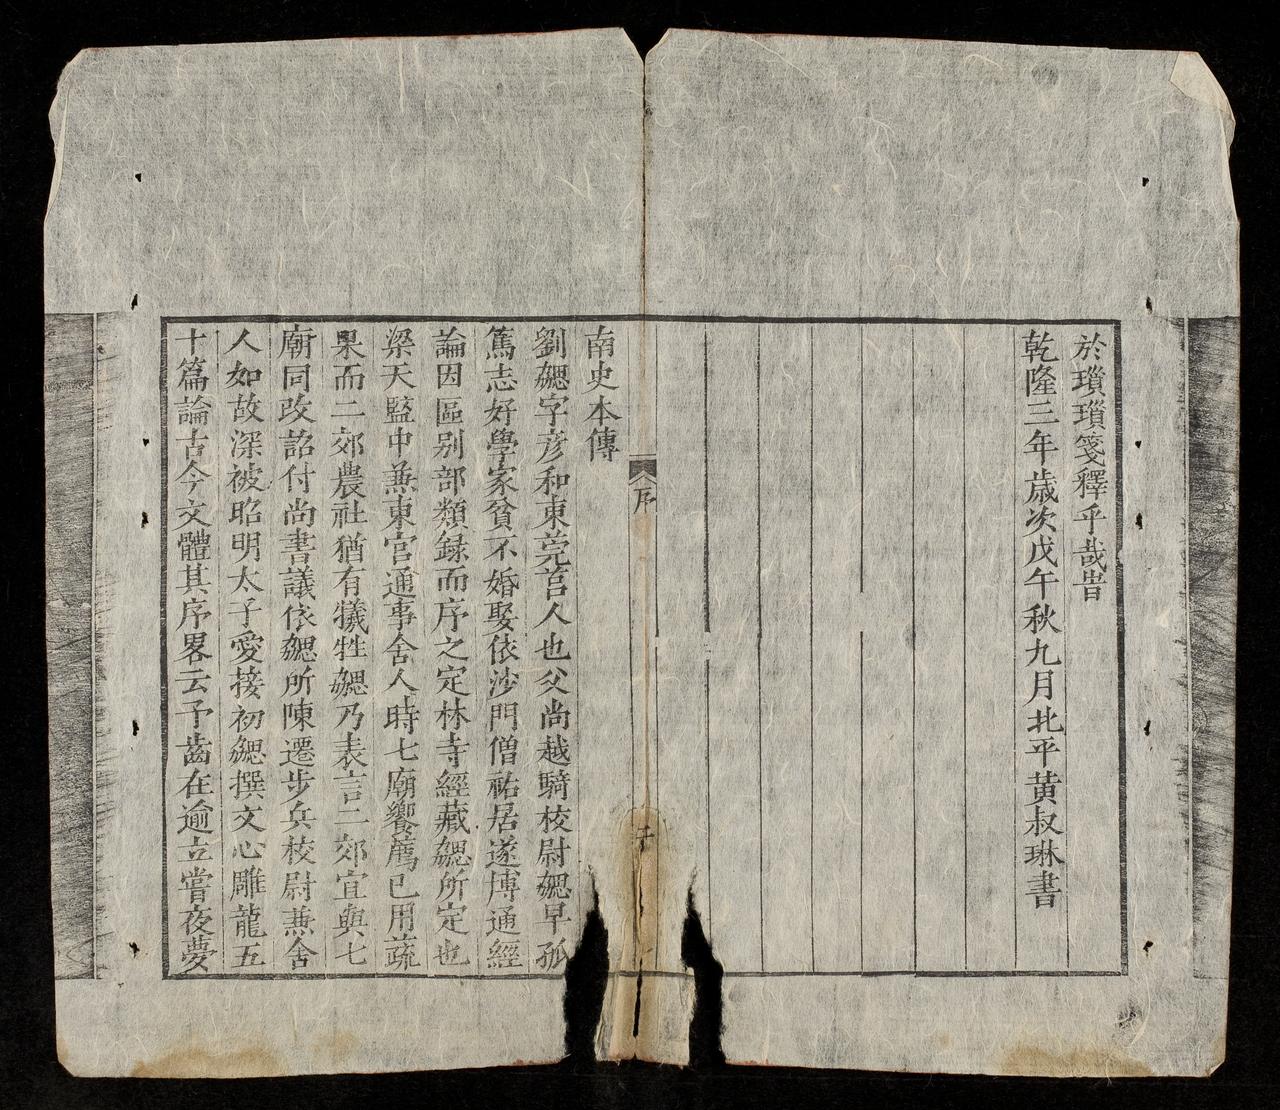 於瑣瑣箋釋乎哉旹
乾隆三年歲次戊午秋九月北平黃叔琳書
序
二
南史本傳
劉勰字彥和東莞莒人也父尚越騎校尉勰早孤
篤志好學家貧不婚娶依沙門僧祐居遂博通經
論因區别部類録而序之定林寺經藏勰所定也
梁天監中兼東宫通事舍人時七廟饗薦已用蔬
果而二郊農社猶有犧牲勰乃表言二郊宜與七
廟同改詔付尚書議依勰所陳遷步兵校尉兼舍
人如故深被昭明太子愛接初勰撰文心雕龍五
十篇論古今文體其序畧云予齒在逾立嘗夜夢